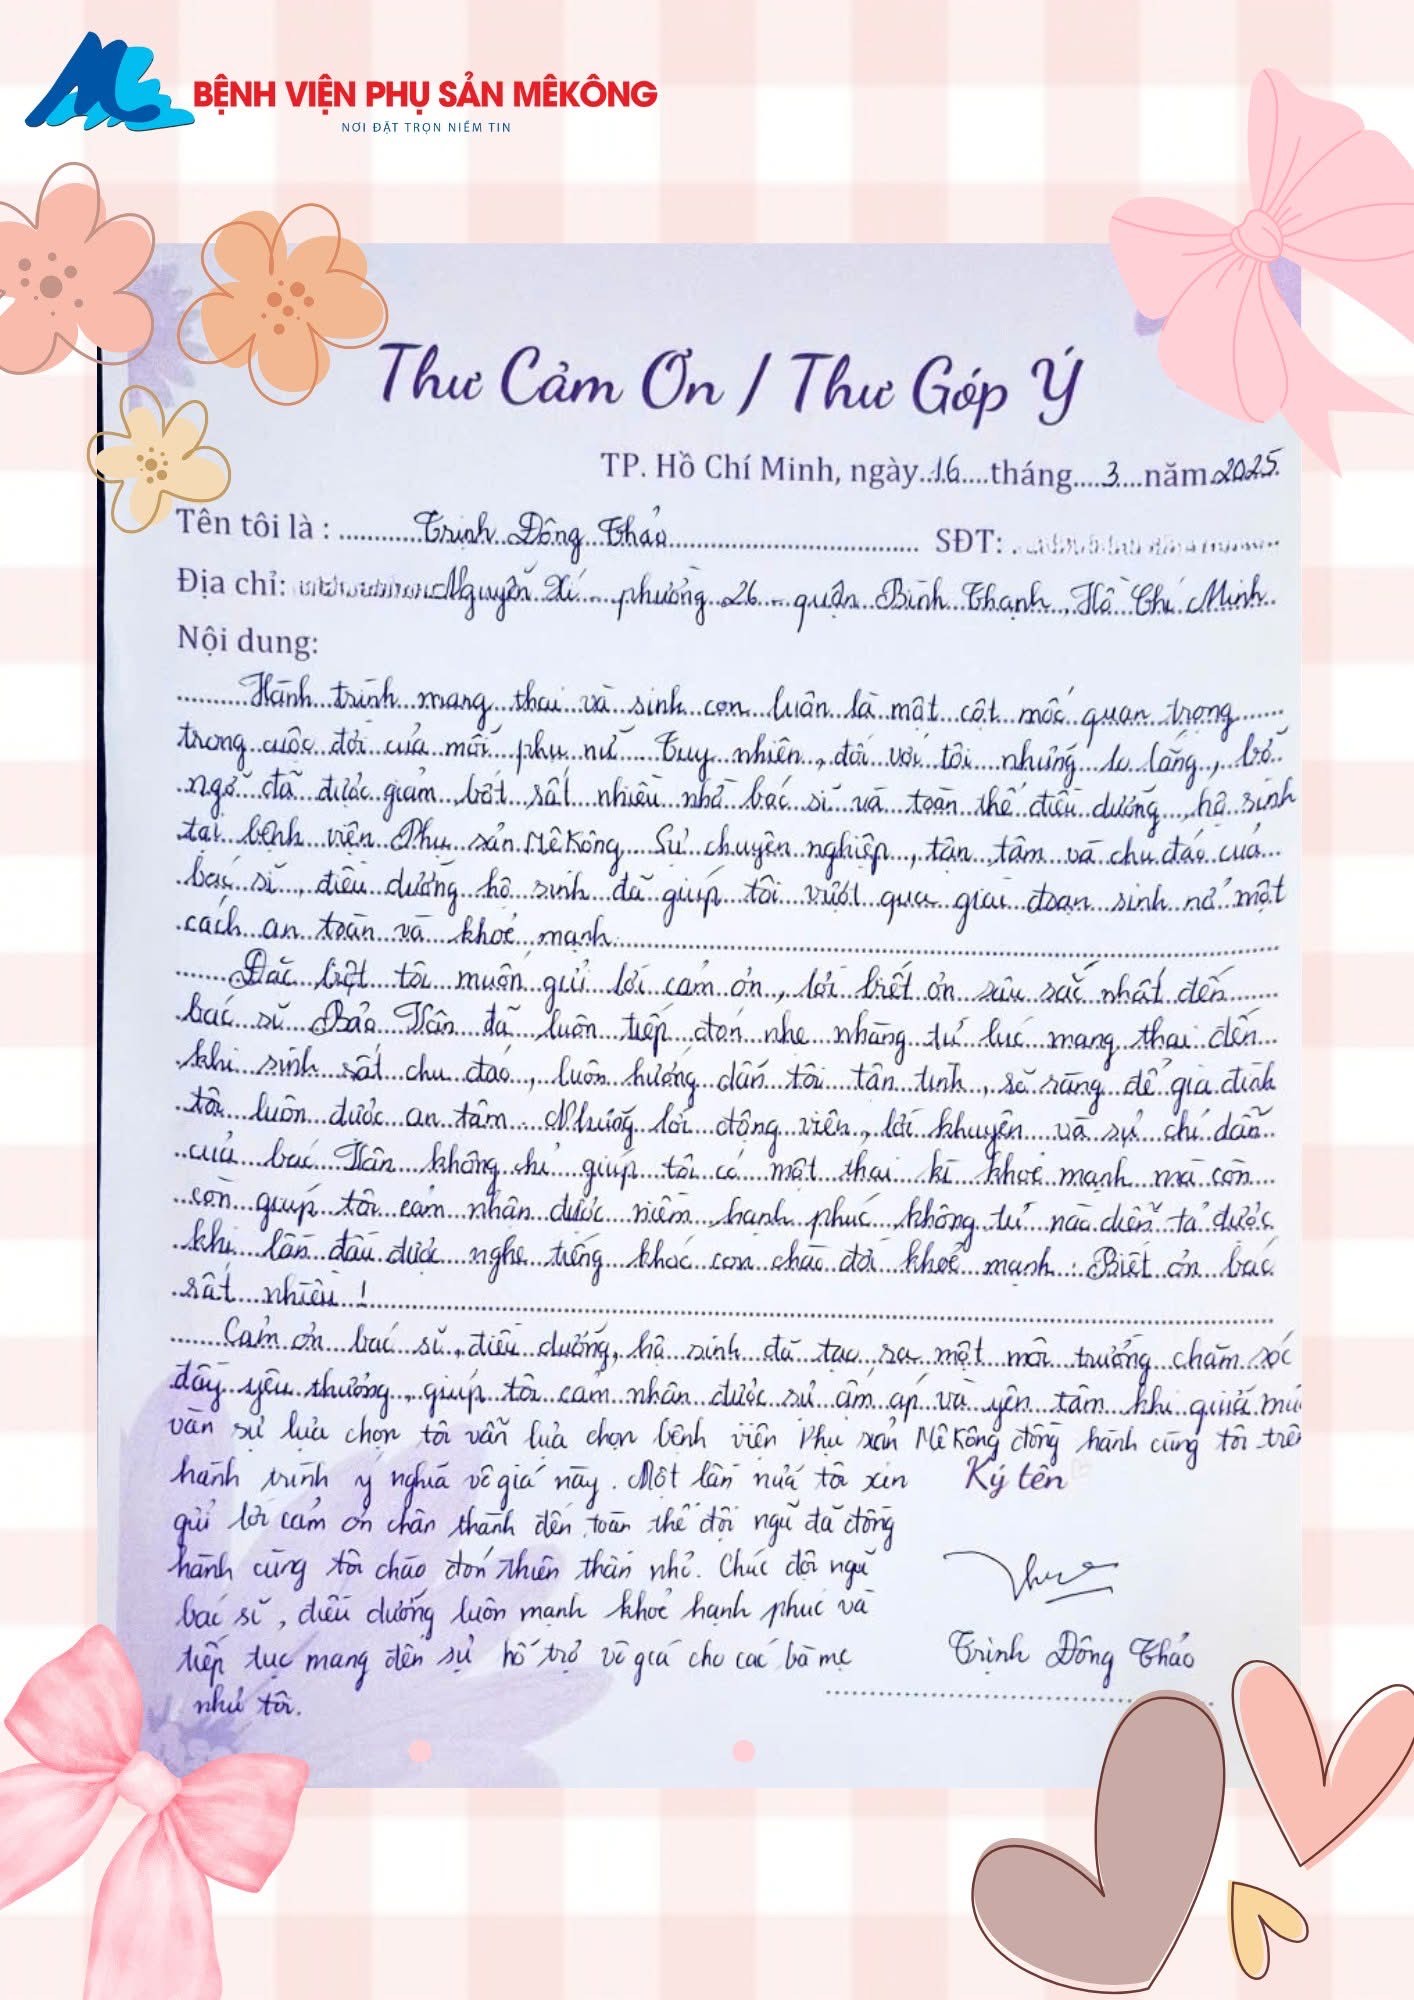 BỆNH VIỆN PHỤ SẢN MÊKÔNG
NƠI ĐẶT TRỌN NIỀM TIN
Thư Cảm Ơn / Thư Góp Ý
TP. Hồ Chí Minh, ngày 16 tháng 3 năm 2025
Tên tôi là : Trịnh Đông Thảo SĐT:
Địa chỉ: Nguyễn Xí - phường 26 - quận Bình Thạnh, Hồ Chí Minh
Nội dung:
Hành trình mang thai và sinh con luôn là một cột mốc quan trọng
trong cuộc đời của mỗi phụ nữ. Tuy nhiên, đối với tôi những lo lắng, bỡ
ngỡ đã được giảm bớt rất nhiều nhờ bác sĩ và toàn thể điều dưỡng, hộ sinh
tại bệnh viện Phụ sản MêKông. Sự chuyên nghiệp, tận tâm và chu đáo của
bác sĩ, điều dưỡng hộ sinh đã giúp tôi vượt qua giai đoạn sinh nở một
cách an toàn và khoẻ mạnh.
Đặc biệt tôi muốn gửi lời cảm ơn, lời biết ơn sâu sắc nhất đến
bác sĩ Bảo Hân đã luôn tiếp đón nhẹ nhàng từ lúc mang thai đến
khi sinh rất chu đáo, luôn hướng dẫn tôi tận tình, rõ ràng để gia đình
tôi luôn được an tâm. Những lời động viên, lời khuyên và sự chỉ dẫn
của bác Hân không chỉ giúp tôi có một thai kì khoẻ mạnh mà còn
còn giúp tôi cảm nhận được niềm hạnh phúc không từ nào diễn tả được
khi lần đầu được nghe tiếng khóc con chào đời khoẻ mạnh. Biết ơn bác
rất nhiều !
Cảm ơn bác sĩ, điều dưỡng, hộ sinh đã tạo ra một môi trường chăm sóc
đầy yêu thương, giúp tôi cảm nhận được sự ấm áp và yên tâm khi giữa
vàn sự lựa chọn tôi vẫn lựa chọn bệnh viện Phụ sản MêKông đồng hành cùng tôi
hành trình ý nghĩa vô giá này. Một lần nữa tôi xin
Ký tên
gửi lời cảm ơn chân thành đến toàn thể đội ngũ đã đồng
hành cùng tôi chào đón thiên thần nhỏ. Chúc đội ngũ
bác sĩ, điều dưỡng luôn mạnh khoẻ hạnh phúc và
tiếp tục mang đến sự hỗ trợ vô giá cho các bà mẹ
Trịnh Đông Thảo
như tôi.